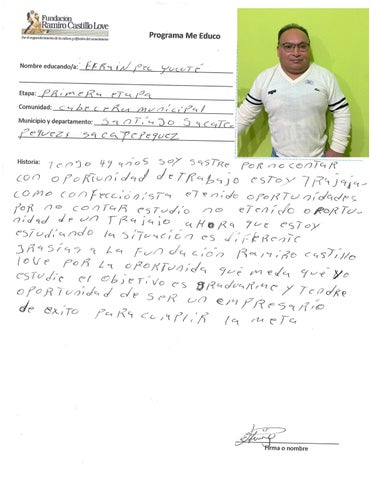 Fundación
Ramiro Castillo Love
Programa Me Educo
Nombre educando/a: EFRAIN PEC YUCUTÉ
Etapa: PRIMERA ETAPA
Comunidad: CABECERA MUNICIPAL
Municipio y departamento: SANTIAGO SACATE
PEQUEZ SACATEPEQUEZ
Historia: TENGO 49 AÑOS SOY SASTRE POR NO CONTAR
CON OPORTUNIDAD DE TRABAJO ESTOY TRAJAJA-
COMO CONFECCIONISTA E TENIDO OPORTUNIDADES
POR NO CONTAR ESTUDIO NO E TENIDO OPORTU-
NIDAD DE UN TRAJAJO AHORA QUE ESTOY
ESTUDIANDO LA SITUACIÓN ES DIFERENTE
GRASIAS A LA FUNDACIÓN RAMIRO CASTILLO
LOVE POR LA OPORTUNIDA QUE ME DA QUE YO
ESTUDIE EL OBJETIVO ES GRADUARME Y TENDRE
OPORTUNIDAD DE SER UN EMPRESARIO
DE EXITO PARA CUMPLIR LA META
Firma o nombre